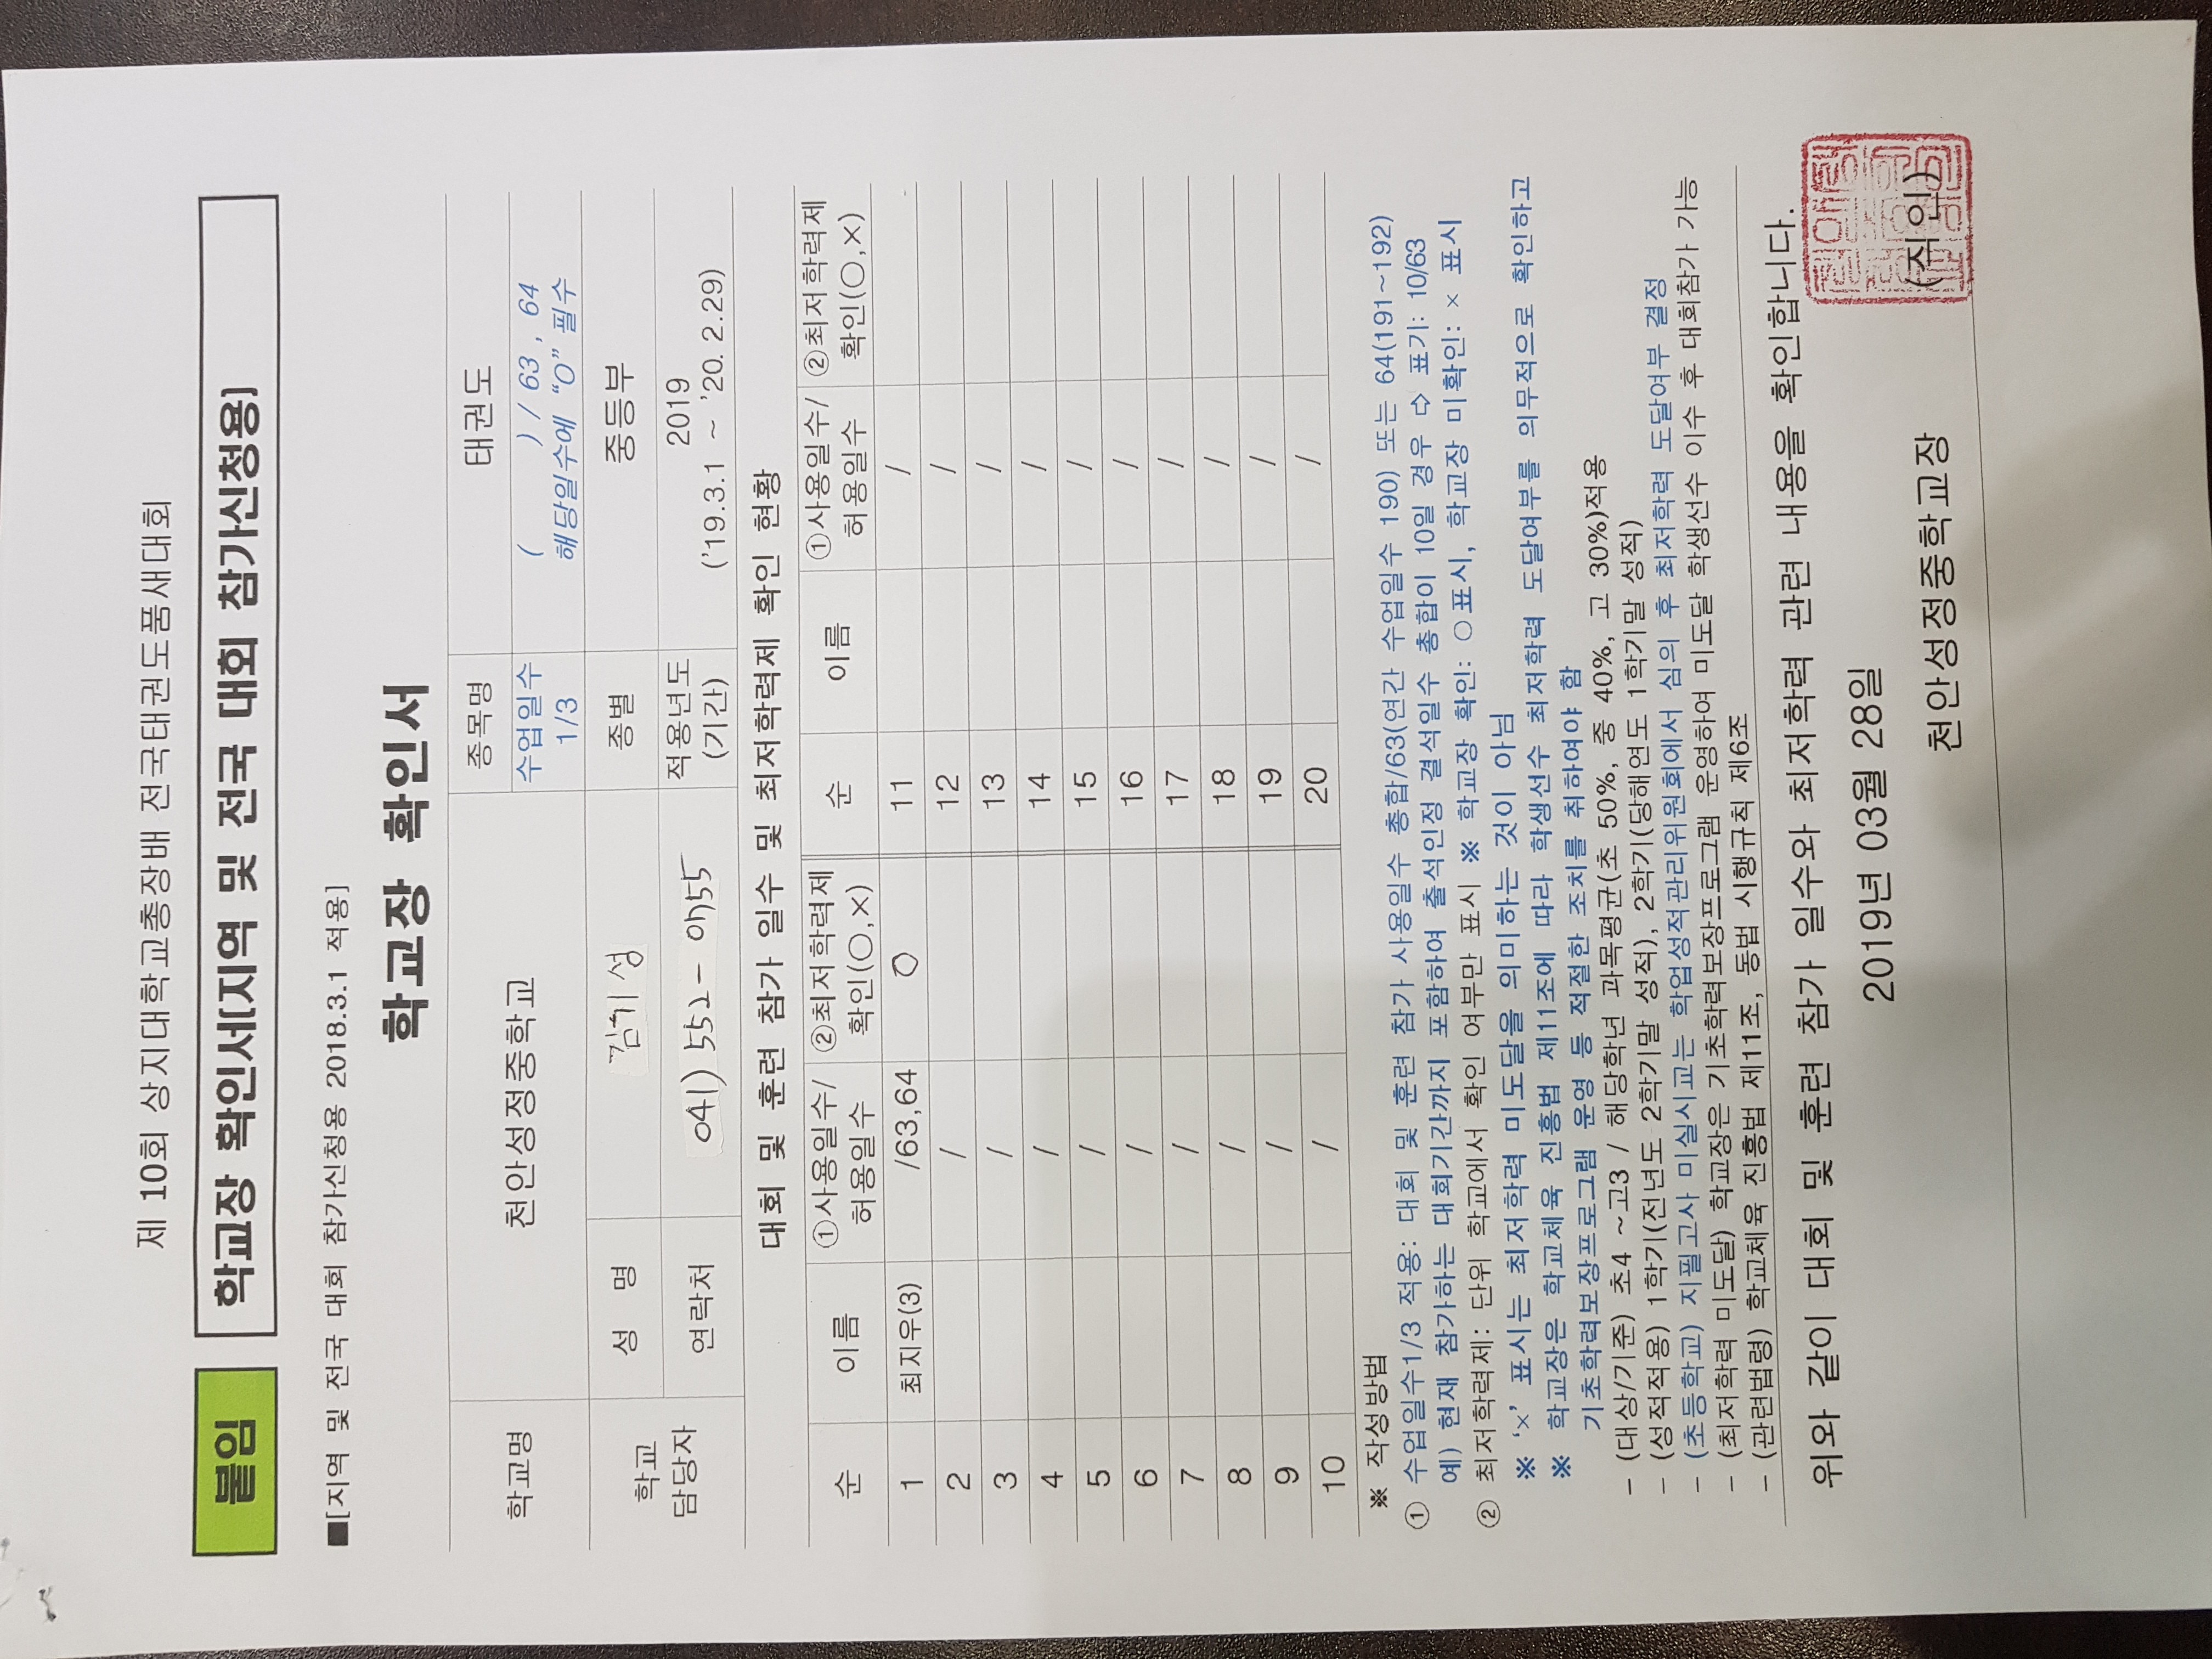 제 10회 상지대학교총장배 전국태권도품새대회
붙임 학교장 확인서[지역 및 전국 대회 참가신청용]
■[지역 및 전국 대회 참가신청용 2018.3.1 적용]
학교장 확인서
학교명 천안성정중학교 종목명 태권도
수업일수 1/3 ( ) / 63 , 64
해당일수에 “O” 필수
학교 담당자 성 명 김기성 종별 중등부
연락처 041) 552- 0755 적용년도 (기간) 2019
('19.3.1 ~ '20. 2.29)
대회 및 훈련 참가 일수 및 최저학력제 확인 현황
순 이름 ①사용일수/허용일수 ②최저학력제 확인(○,×) 순 이름 ①사용일수/허용일수 ②최저학력제 확인(○,×)
1 최지우(3) /63,64 O 11 /
2 / 12 /
3 / 13 /
4 / 14 /
5 / 15 /
6 / 16 /
7 / 17 /
8 / 18 /
9 / 19 /
10 / 20 /
※ 작성방법
① 수업일수1/3 적용: 대회 및 훈련 참가 사용일수 총합/63(연간 수업일수 190) 또는 64(191~192)
예) 현재 참가하는 대회기간까지 포함하여 출석인정 결석일수 총합이 10일 경우 ⇨ 표기: 10/63
② 최저학력제: 단위 학교에서 확인 여부만 표시 ※ 학교장 확인: ○ 표시, 학교장 미확인: × 표시
※ ‘×’ 표시는 최저학력 미도달을 의미하는 것이 아님
※ 학교장은 학교체육 진흥법 제11조에 따라 학생선수 최저학력 도달여부를 의무적으로 확인하고
기초학력보장프로그램 운영 등 적절한 조치를 취하여야 함
- (대상/기준) 초4 ~고3 / 해당학년 과목평균(초 50%, 중 40%, 고 30%)적용
- (성적적용) 1학기(전년도 2학기말 성적), 2학기(당해연도 1학기말 성적)
- (초등학교) 지필고사 미실시교는 학업성적관리위원회에서 심의 후 최저학력 도달여부 결정
- (최저학력 미도달) 학교장은 기초학력보장프로그램 운영하여 미도달 학생선수 이수 후 대회참가 가능
- (관련법령) 학교체육 진흥법 제11조, 동법 시행규칙 제6조
위와 같이 대회 및 훈련 참가 일수와 최저학력 관련 내용을 확인합니다.
2019년 03월 28일
천안성정중학교장 (직인)